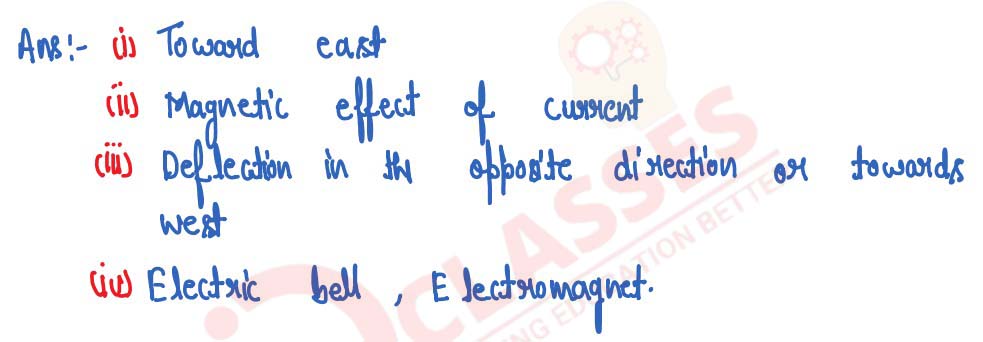 Ans:- (i) Toward east
(ii) Magnetic effect of current
(iii) Deflection in th opposite direction or towards
west
(iv) Electric bell, Electromagnet.
CLASSES